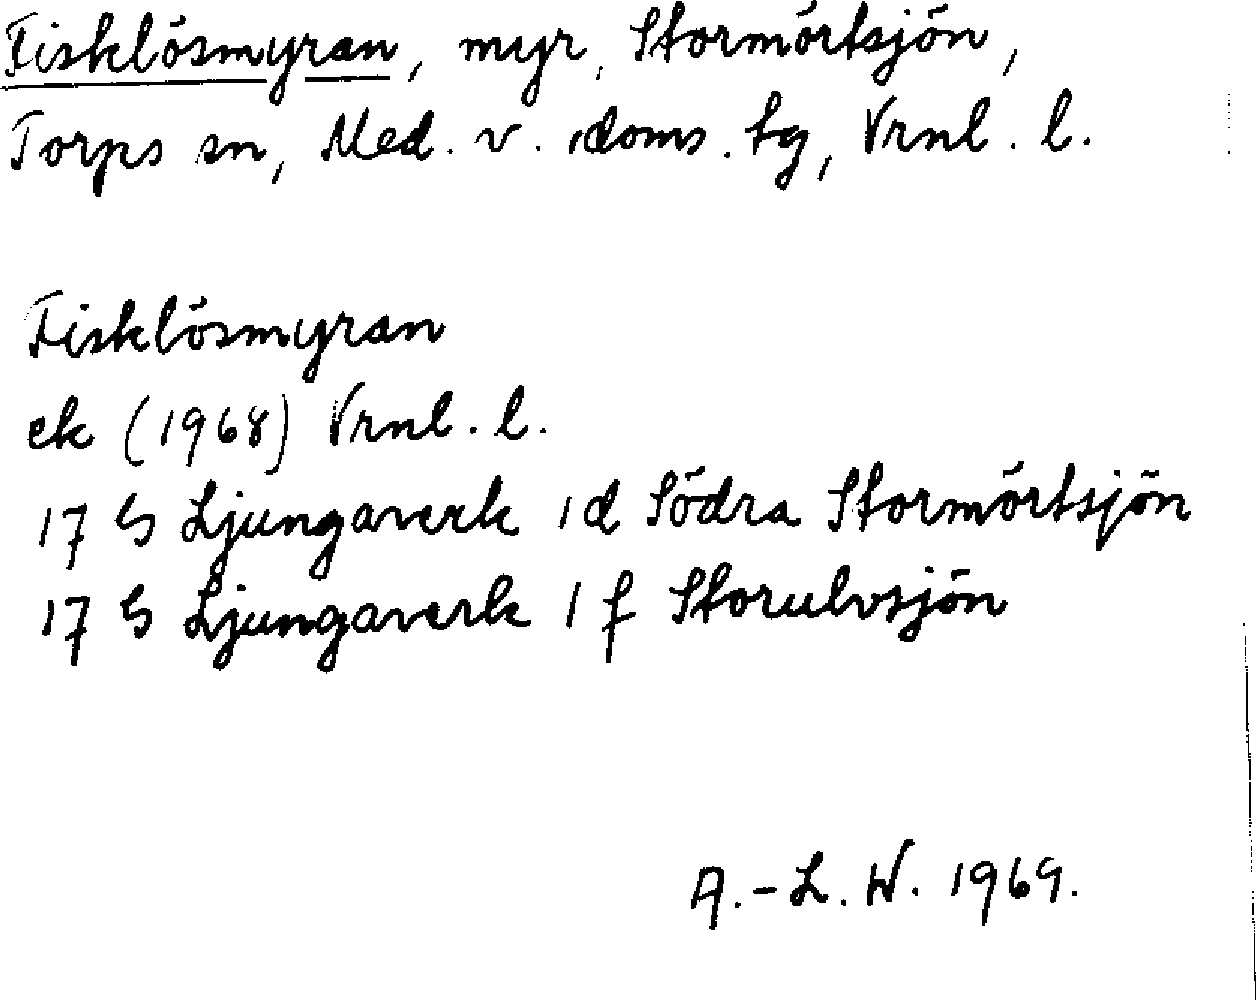 Fisklösmyran, myr, Stormörtsjön,
Torps sn, Med. v. doms. tg, Vrnl. l.
Fisklösmyran
ek (1968) Vrnl. l.
17 G Ljungaverk 1 d Södra Stormörtsjön
17 G Ljungaverk 1 f Storulvsjön
A.-L. W. 1969.